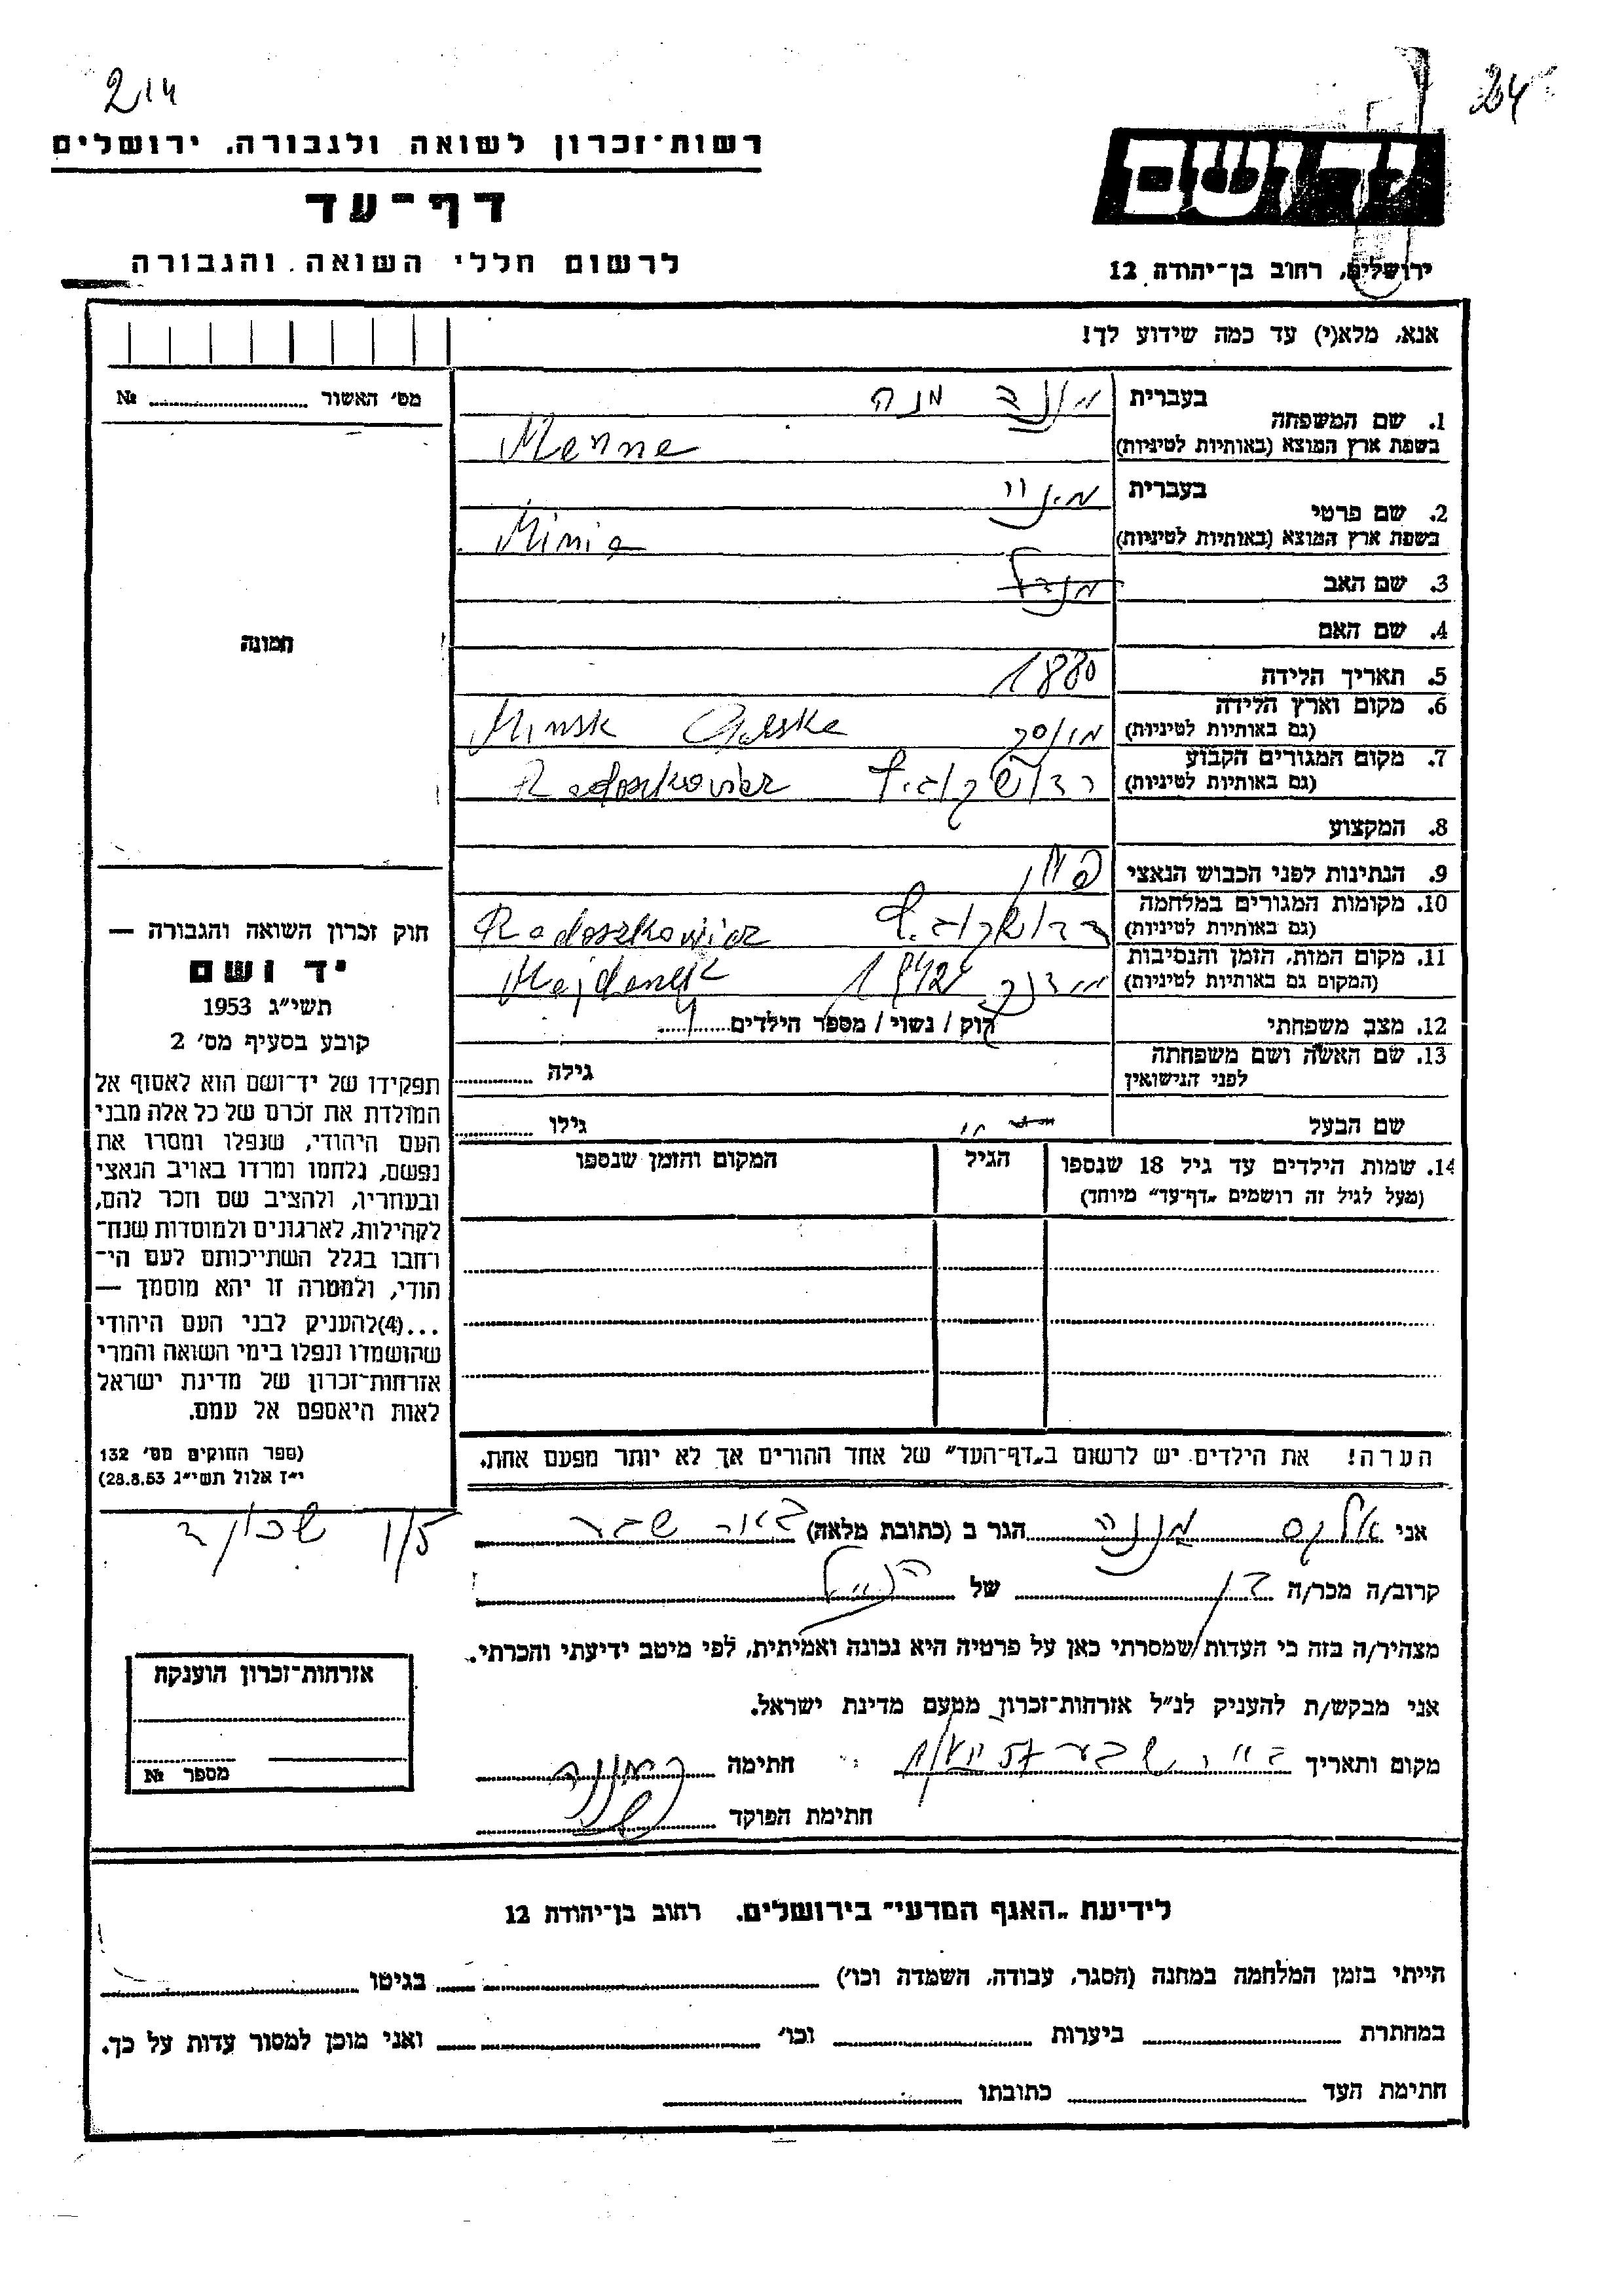 214
24
רשות־זכרון לשואה ולגבורה. ירושלים
דף־עד
לרשום חללי השואה והגבורה
יד ושם
ירושלים, רחוב בן־יהודה 12
אנא, מלא(י) עד כמה שידוע לך!
מס׳ האשור № 
1. שם המשפחה
בעברית מנה
בשפת ארץ המוצא (באותיות לטיניות) Menne
2. שם פרטי
בעברית
בשפת ארץ המוצא (באותיות לטיניות) Minia
3. שם האב
4. שם האם
5. תאריך הלידה 1880
6. מקום וארץ הלידה
(גם באותיות לטיניות) מינסק Minsk
7. מקום המגורים הקבוע
(גם באותיות לטיניות) Radoszkowicz
8. המקצוע
9. הנתינות לפני הכבוש הנאצי
10. מקומות המגורים במלחמה
(גם באותיות לטיניות) Radoszkowicz
11. מקום המות, הזמן והנסיבות
(המקום גם באותיות לטיניות) 1942 Majdanek
12. מצב משפחתי רוק / נשוי / מספר הילדים
13. שם האשה ושם משפחתה
לפני הנישואין
גילה
שם הבעל
גילו
14. שמות הילדים עד גיל 18 שנספו
(מעל לגיל זה רושמים „דף־עד״ מיוחד)
הגיל
המקום והזמן שנספו
הערה! את הילדים יש לרשום ב„דף־העד״ של אחד ההורים אך לא יותר מפעם אחת.
תמונה
חוק זכרון השואה והגבורה —
יד ושם
תשי״ג 1953
קובע בסעיף מס׳ 2
תפקידו של יד־ושם הוא לאסוף אל
המולדת את זכרם של כל אלה מבני
העם היהודי, שנפלו ומסרו את
נפשם, נלחמו ומרדו באויב הנאצי
ובעוזריו, ולהציב שם וזכר להם,
לקהילות, לארגונים ולמוסדות שנח־
רחבו בגלל השתייכותם לעם הי־
הודי, ולמטרה זו יהא מוסמך —
...(4)להעניק לבני העם היהודי
שהושמדו ונפלו בימי השואה והמרי
אזרחות־זכרון של מדינת ישראל
לאות היאספם אל עמם.
(ספר החוקים מס׳ 132
י״ז אלול תשי״ג 28.8.53)
אני מננה הגר ב (כתובת מלאה) באר שבע
קרוב/ה מכר/ה בן של הנ״ל
מצהיר/ה בזה כי העדות שמסרתי כאן על פרטיה היא נכונה ואמיתית, לפי מיטב ידיעתי והכרתי.
אני מבקש/ת להעניק לנ״ל אזרחות־זכרון מטעם מדינת ישראל.
מקום ותאריך חתימה
חתימת הפוקד
אזרחות־זכרון הוענקה
מספר №
לידיעת „האגף המדעי״ בירושלים. רחוב בן־יהודה 12
הייתי בזמן המלחמה במחנה (הסגר, עבודה, השמדה וכו׳) בגיטו
במחתרת ביערות וכו׳ ואני מוכן למסור עדות על כך.
חתימת העד כתובתו